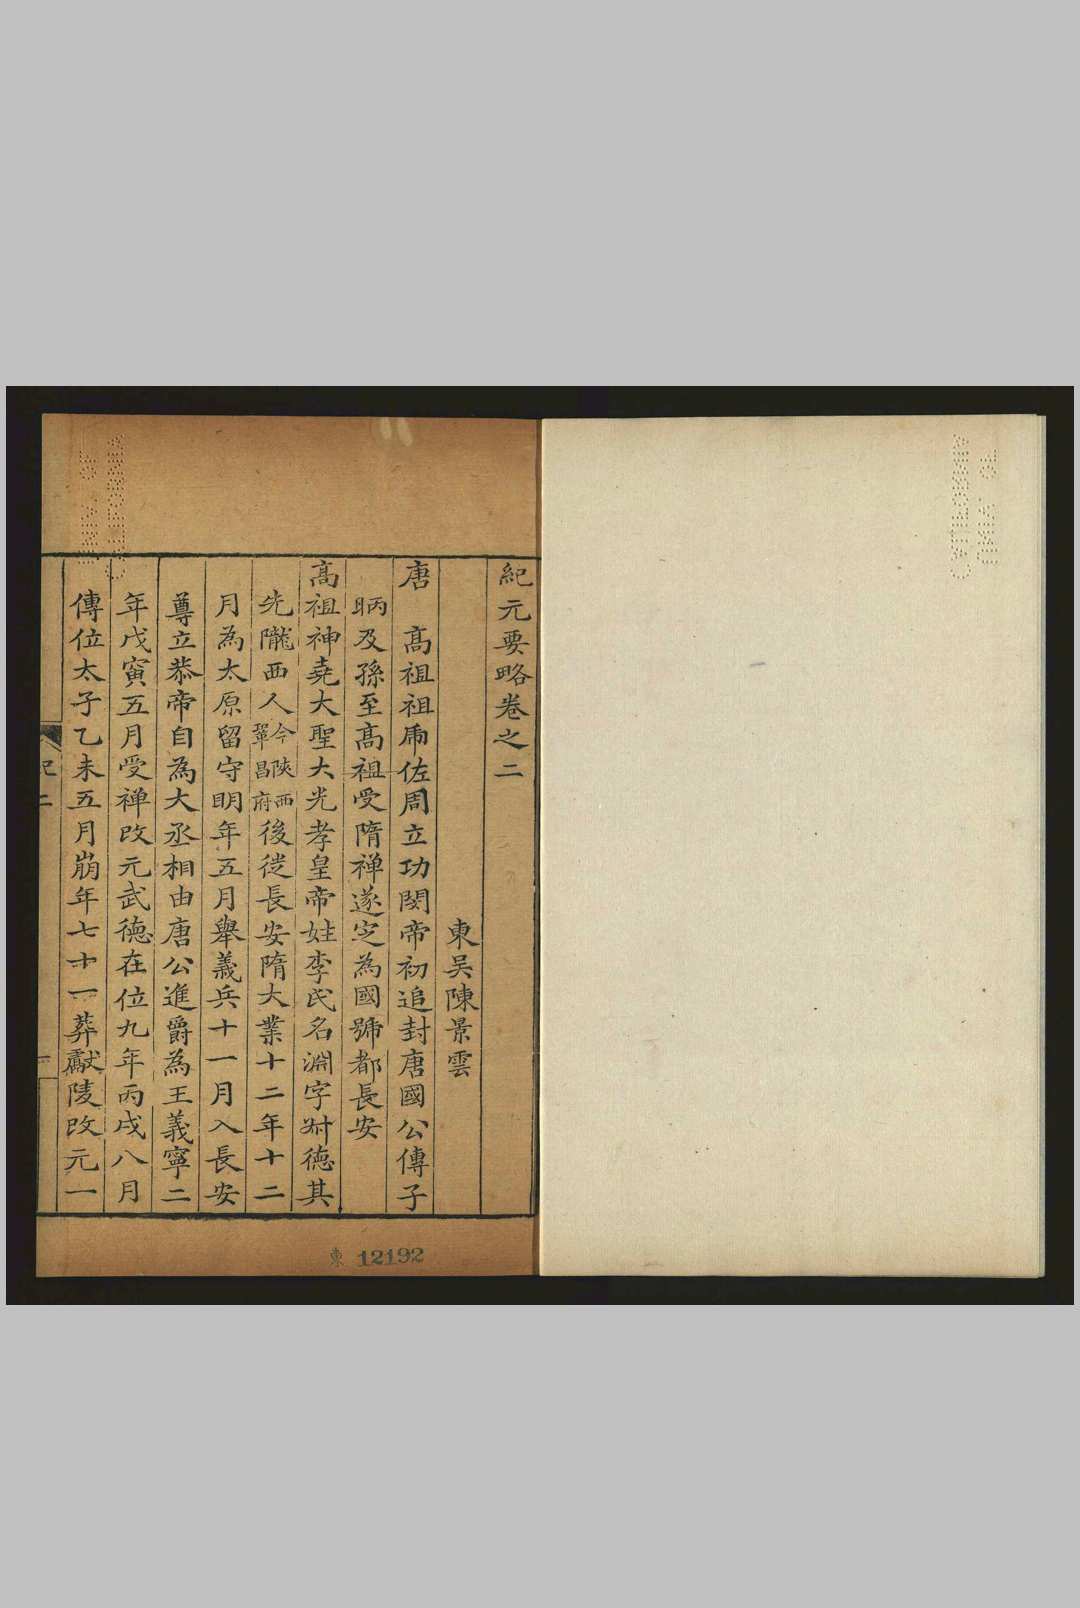 紀元要略卷之二
東吴陳景雲
唐 髙祖祖虎佐周立功閔帝初追封唐國公傳子
昞及孫至髙祖受隋禅遂定為國號都長安
髙祖神堯大聖大光孝皇帝姓李氏名淵字叔德其
先隴西人今陝西鞏昌府後徙長安隋大業十二年十二
月為太原留守明年五月舉義兵十一月入長安
尊立恭帝自為大丞相由唐公進爵為王義寧二
年戊寅五月受禅改元武德在位九年丙戌八月
傳位太子乙未五月崩年七十一葬獻陵改元一
紀二
一
東 12192
UNIV. OF
CALIFORNIA
UNIV. OF
CALIFORNIA